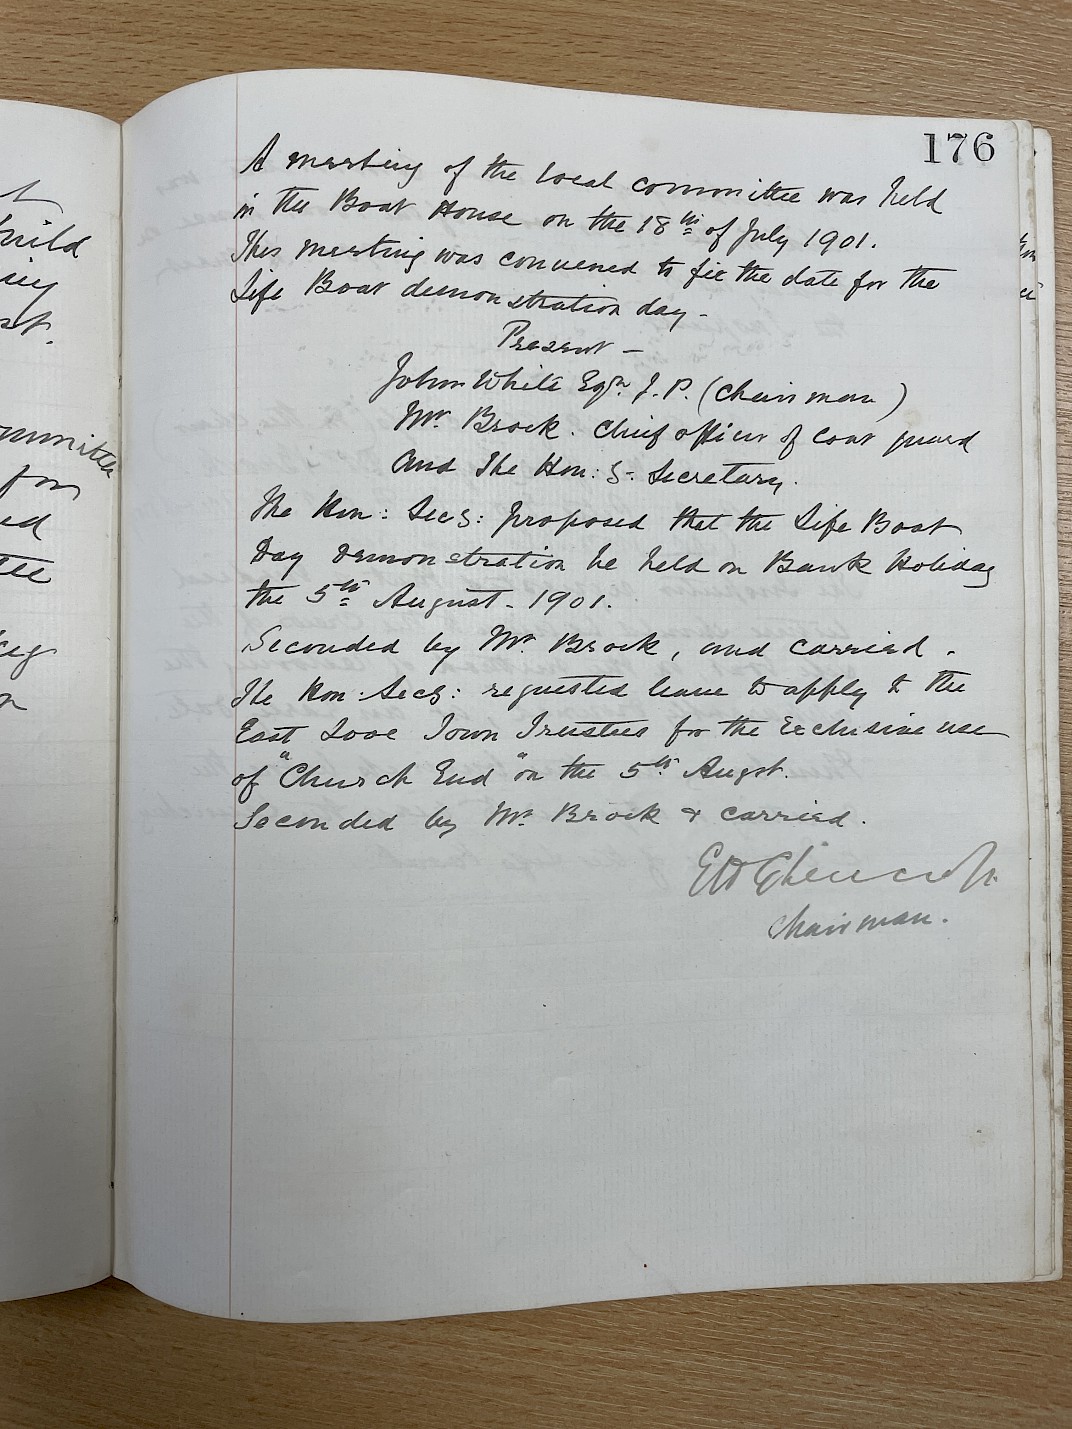 176
A meeting of the local committee was held
in the Boat House on the 18th of July 1901.
This meeting was convened to fix the date for the
Life Boat demonstration day -
Present -
John White Esqr. J. P. (Chairman)
Mr. Brock. Chief officer of Coast guard
and The Hon: S- Secretary.
The Hon: Secy: proposed that the Life Boat
Day Demonstration be held on Bank Holiday
the 5th August - 1901.
Seconded by Mr. Brock, and carried.
The Hon: Secy: requested leave to apply to the
East Looe Town Trustees for the Exclusive use
of "Church End" on the 5th Augst.
Seconded by Mr. Brock & carried.
Chairman.